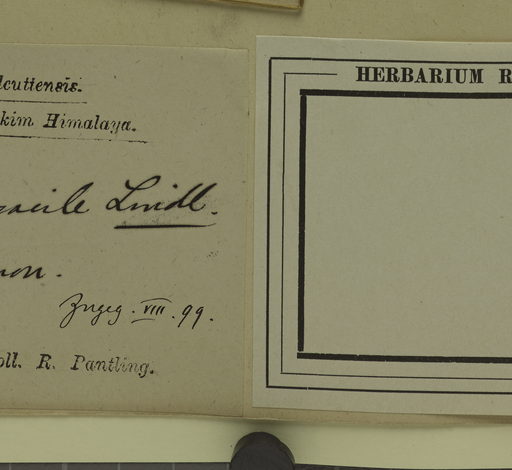 lcuttensis.
kim Himalaya.
racile Lindl.
non.
Zugeg. VIII. 99.
oll. R. Pantling.
HERBARIUM R